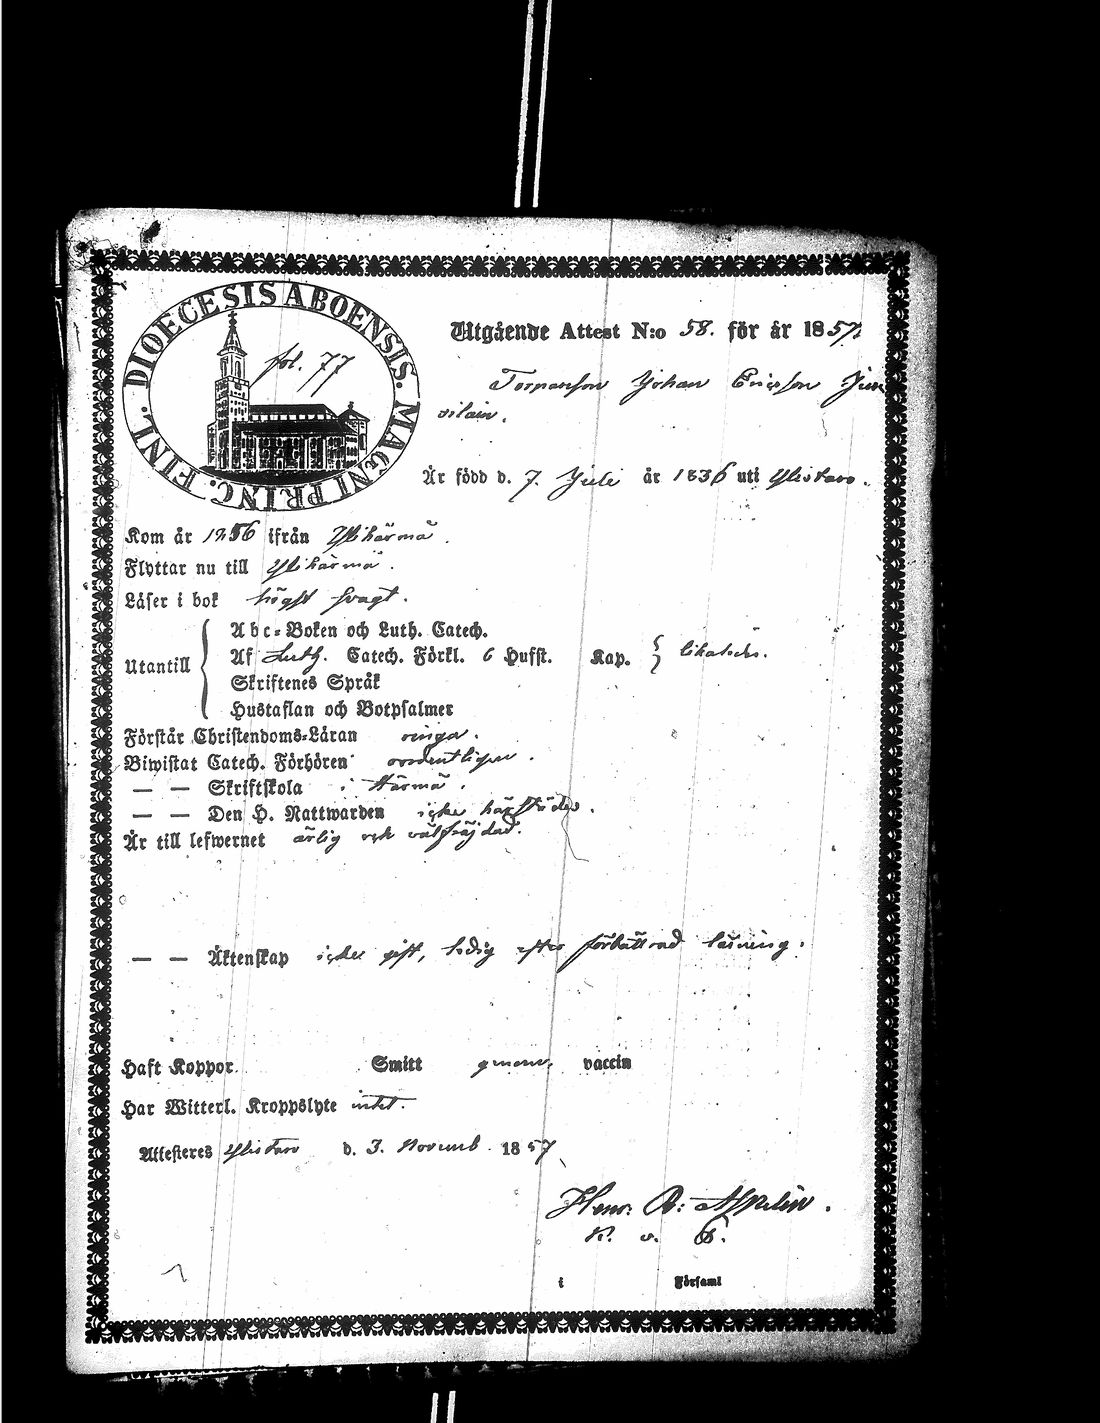 DIOECESIS ABOENSIS. MAGNI PRINC. FINL.
fol. 77
Utgående Attest N:o 58. för år 1857.
Torpareson Johan Ericsson
Är född d. 7 Juli år 1836 uti Ylistaro.
Kom år 1856 ifrån Ylihärmä.
Flyttar nu till Ylihärmä.
Läser i bok högst svagt.
Utantill
Abc-Boken och Luth. Catech.
Af Luth. Catech. Förkl. 6 Hufst. Kap. likaledes.
Skriftenes Språk
Hustaflan och Botpsalmer
Förstår Christendoms-Läran ringa.
Biwistat Catech. Förhören ordentligen.
— — Skriftskola i Härmä.
— — Den H. Nattwarden icke härstädes.
Är till lefwernet ärlig och välfräjdad.
— — Äktenskap icke gift, ledig efter förbättrad läsning.
Haft Koppor Smitt genom vaccin
Har Witterl. Kroppslyte intet.
Attesteras Ylistaro d. 3. Novemb. 1857
Henr. R: Aspelin.
i Församl